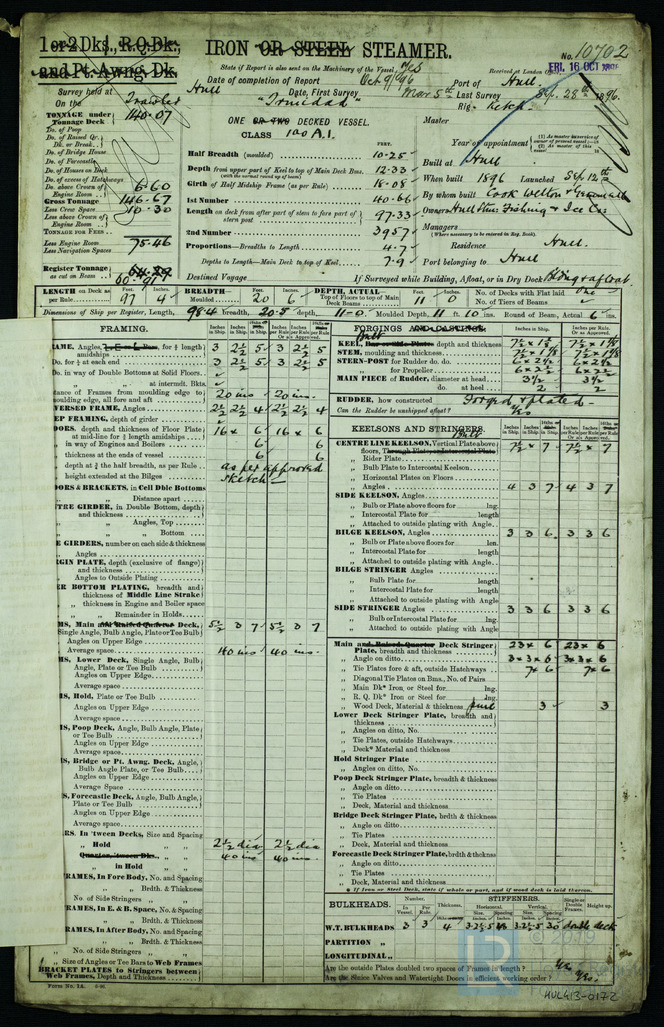 1 or 2 Dks., R.Q. Dk.,
and Pt. Awng. Dk.
IRON OR STEEL STEAMER.
No. 10702
State if Report is also sent on the Machinery of the Vessel Yes
Received at London Office FRI. 16 OCT 1896
Survey held at Hull
Date of completion of Report Oct 9/96
Port of Hull
On the Trawler "Trinidad"
Date, First Survey Mar 5th Last Survey Sep. 28th 1896.
Rig Ketch
TONNAGE under Tonnage Deck 140.07
Do. of Poop
Do. of Raised Qr. Dk. or Break
Do. of Bridge House
Do. of Forecastle
Do. of Houses on Deck
Do. of excess of Hatchways
Do. above Crown of Engine Room 6.60
Gross Tonnage 146.67
Less Crew Space 10.30
Less above Crown of Engine Room
TONNAGE FOR FEES
Less Engine Room 75.46
Less Navigation Spaces
Register Tonnage as cut on Beam 60.91
ONE OR TWO DECKED VESSEL.
CLASS 100 A.1.
FEET.
Half Breadth (moulded) 10.25
Depth from upper part of Keel to top of Main Deck Bms. 12.33
(with the normal round up of beam)
Girth of Half Midship Frame (as per Rule) 18.08
1st Number 40.66
Length on deck from after part of stem to fore part of stern post 97.33
2nd Number 3957
Proportions—Breadths to Length 4.7
Depths to Length—Main Deck to top of Keel 7.9
Destined Voyage
If Surveyed while Building, Afloat, or in Dry Dock Bldng & afloat
Master
Year of appointment
Built at Hull
When built 1896 Launched Sep. 12th
By whom built Cook Welton &
Owners Hull Steam Fishing & Ice Co
Managers
(Where necessary to be entered in Reg. Book).
Residence Hull.
Port belonging to Hull
LENGTH on Deck as per Rule Feet. 97 Inches. 4
BREADTH—Moulded Feet. 20 Inches. 6
DEPTH, ACTUAL—Top of Floors to top of Main Deck Beams Feet. 11 Inches. 0
No. of Decks with Flat laid one
No. of Tiers of Beams
Dimensions of Ship per Register, length, 98.4 breadth, 20.5 depth, 11.0 Moulded Depth, 11 ft. 10 ins. Round of Beam, Actual 6 ins.
FRAMING.
Inches in Ship. Inches in Ship. Inches per Rule Inches per Rule
AME, Angles, for ¾ length amidships 3 2½ 5 3 2½ 5
Do. for ⅛ at each end 3 2½ 5 3 2½ 5
Do. in way of Double Bottoms at Solid Floors
„ „ at intermdt. Bkts.
tance of Frames from moulding edge to moulding edge, all fore and aft 20 ins 20 ins.
VERSED FRAME, Angles 2½ 2½ 4 2½ 2½ 4
EEP FRAMING, depth of girder
OORS, depth and thickness of Floor Plate at mid-line for ½ length amidships 16 x 6 16 x 6
in way of Engines and Boilers 6 6
thickness at the ends of vessel 6 6
depth at ¾ the half breadth, as per Rule as per approved
height extended at the Bilges sketch
OORS & BRACKETS, in Cell Dble Bottoms
„ Distance apart
TRE GIRDER, in Double Bottom, depth and thickness
„ Angles, Top
„ „ Bottom
E GIRDERS, number on each side & thickness
„ Angles
RGIN PLATE, depth (exclusive of flange) and thickness
„ Angles to Outside Plating
ER BOTTOM PLATING, breadth and thickness of Middle Line Strake
„ thickness in Engine and Boiler space
„ „ Remainder in Holds
MS, Main and Raised Quarter Deck, Single Angle, Bulb Angle, Plate or Tee Bulb 5½ 3 7 5½ 3 7
Angles on Upper Edge
Average space 40 ins 40 ins.
MS, Lower Deck, Single Angle, Bulb Angle, Plate or Tee Bulb
Angles on Upper Edge
Average space
MS, Hold, Plate or Tee Bulb
Angles on Upper Edge
Average space
MS, Poop Deck, Angle, Bulb Angle, Plate or Tee Bulb
Angles on Upper Edge
Average space
MS, Bridge or Pt. Awng. Deck, Angle, Bulb Angle Plate, or Tee Bulb
Angles on Upper Edge
Average Space
MS, Forecastle Deck, Angle, Bulb Angle, Plate or Tee Bulb
Angles on Upper Edge
Average space
RS. In 'tween Decks, Size and Spacing
„ Hold „ „ 2½ dia 2½ dia
Quarter 'tween Dks. „ „ 40 ins 40 ins.
„ in Hold „ „
RAMES, In Fore Body, No. and Spacing
„ „ Brdth. & Thickness
No. of Side Stringers „ „
RAMES, in E. & B. Space, No. & Spacing
„ „ Brdth. & Thickness
RAMES, in After Body, No. and Spacing
„ „ Brdth. & Thickness
No. of Side Stringers „ „
Size of Angles or Tee Bars to Web Frames
BRACKET PLATES to Stringers between Web Frames, Depth and Thickness
FORGINGS AND CASTINGS.
Inches in Ship. Inches per Rule Or as Approved.
KEEL, Bar or Side Plates depth and thickness
STEM, moulding and thickness
STERN-POST for Rudder do. do.
„ for Propeller
MAIN PIECE of Rudder, diameter at head 3½ 3½
do. at heel 2 2
RUDDER, how constructed Forged & plated
Can the Rudder be unshipped afloat? Yes
KEELSONS AND STRINGERS.
CENTRE LINE KEELSON, Vertical Plate above floors, Through Plate, or Intercostal Plate 7½ x 7 7½ x 7
„ Rider Plate
„ Bulb Plate to Intercostal Keelson
„ Horizontal Plates on Floors
„ Angles 4 3 7 4 3 7
SIDE KEELSON, Angles
„ Bulb or Plate above floors for lng.
„ Intercostal Plate for length
„ Attached to outside plating with Angle
BILGE KEELSON, Angles 3 3 6 3 3 6
„ Bulb or Plate above floors for len.
„ Intercostal Plate for length
„ Attached to outside plating with Angle
BILGE STRINGER Angles
„ Bulb Plate for length
„ Intercostal Plate for length
„ Attached to outside plating with Angle
SIDE STRINGER Angles 3 3 6 3 3 6
„ Bulb or Intercostal Plate for lng.
„ Attached to outside plating with Angle
Main and Raised Quarter Deck Stringer Plate, breadth and thickness 23 x 6 23 x 6
„ Angle on ditto 3 x 3 x 6 3 x 3 x 6
„ Tie Plates fore & aft, outside Hatchways 7 x 6 7 x 6
„ Diagonal Tie Plates on Bms., No. of Pairs
„ Main Dk* Iron or Steel for lng.
„ R. Q. Dk* Iron or Steel for lng.
„ Wood Deck, Material & thickness 3 3
Lower Deck Stringer Plate, breadth and thickness
„ Angles on ditto, No.
„ Tie Plates, outside Hatchways
„ Deck* Material and thickness
Hold Stringer Plate
„ Angles on ditto, No.
Poop Deck Stringer Plate, breadth & thickness
„ Angle on ditto
„ Tie Plates
„ Deck, Material and thickness
Bridge Deck Stringer Plate, brdth & thickness
„ Angle on ditto
„ Tie Plates
„ Deck, Material and thickness
Forecastle Deck Stringer Plate, brdth & thckns
„ Angle on ditto
„ Tie Plates
„ Deck, Material and thickness
* If Iron or Steel Deck, state if whole or part, and if wood deck is laid thereon.
BULKHEADS.
Number. In Vessel Per Rule. Thickness. STIFFENERS. Horizontal. Vertical. Size. Spacing Single or Double Frames. Height up.
W.T. BULKHEADS 3 3 4 double deck
PARTITION „
LONGITUDINAL „
Are the outside Plates doubled two spaces of Frames in length? Yes
Are the Sluice Valves and Watertight Doors in efficient working order? Yes.
Form No. 1A.
HUL413-0172